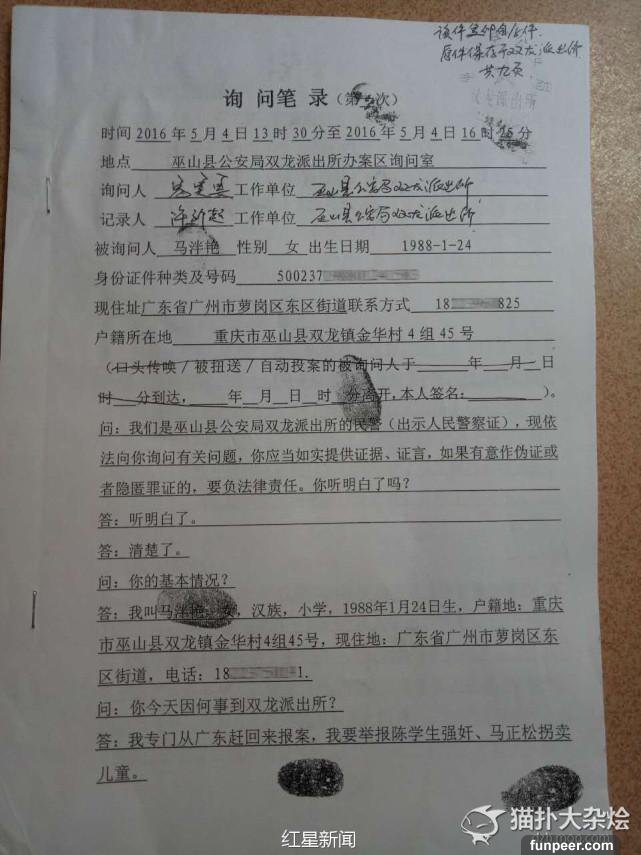 该件复印自原件.
原件保存于双龙派出所
共九页
双龙派出所
询 问 笔 录（第 次）
时间 2016 年 5 月 4 日 13 时 30 分至 2016 年 5 月 4 日 16 时 15 分
地点 巫山县公安局双龙派出所办案区询问室
询问人 工作单位 巫山县公安局双龙派出所
记录人 工作单位 巫山县公安局双龙派出所
被询问人 马泮艳 性别 女 出生日期 1988-1-24
身份证件种类及号码 500237
现住址广东省广州市萝岗区东区街道联系方式 18 825
户籍所在地 重庆市巫山县双龙镇金华村 4 组 45 号
（口头传唤／被扭送／自动投案的被询问人于 年 月 日
时 分到达， 年 月 日 时 分离开，本人签名： ）。
问：我们是巫山县公安局双龙派出所的民警（出示人民警察证），现依
法向你询问有关问题，你应当如实提供证据、证言，如果有意作伪证或
者隐匿罪证的，要负法律责任。你听明白了吗？
答：听明白了。
答：清楚了。
问：你的基本情况？
答：我叫马泮艳，女，汉族，小学，1988年1月24日生，户籍地：重庆
市巫山县双龙镇金华村4组45号，现住地：广东省广州市萝岗区东
区街道，电话：18 1.
问：你今天因何事到双龙派出所？
答：我专门从广东赶回来报案，我要举报陈学生强奸、马正松拐卖
儿童。
红星新闻
猫扑大杂烩
funpeer.com